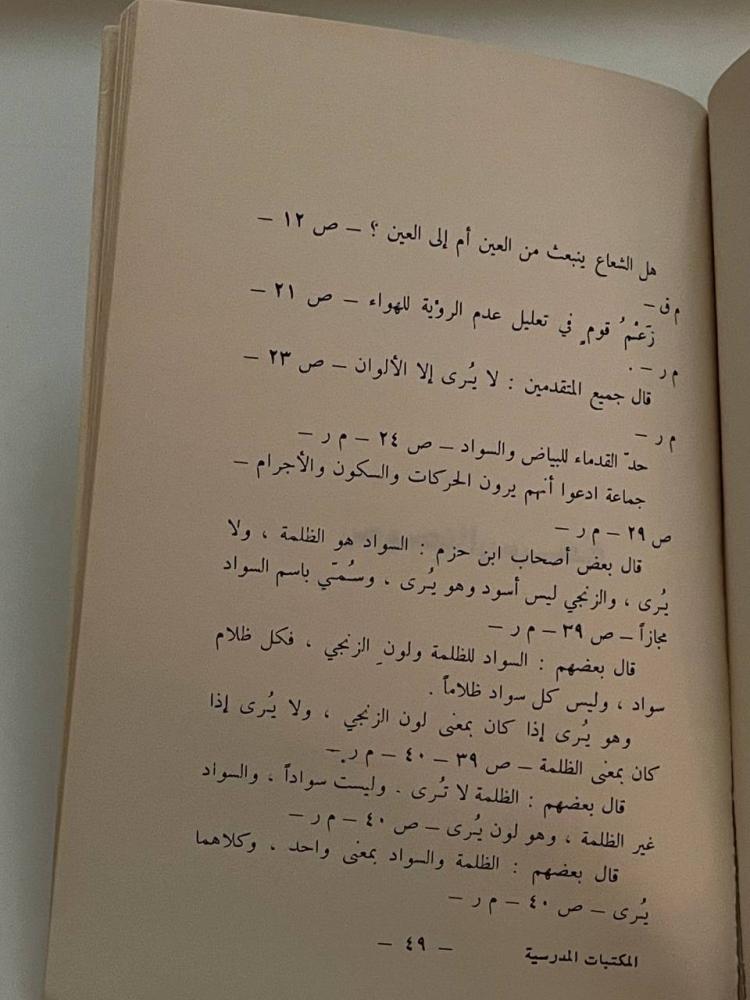 هل الشعاع ينبعث من العين أم إلى العين ؟ – ص ١٢ –
م ق –
زَعْمُ قومٍ في تعليل عدم الرؤية للهواء – ص ٢١ –
م ر – .
قال جميع المتقدمين : لا يُرى إلا الألوان – ص ٢٣ –
م ر –
حدّ القدماء للبياض والسواد – ص ٢٤ – م ر –
جماعة ادعوا أنهم يرون الحركات والسكون والأجرام –
ص ٢٩ – م ر –
قال بعض أصحاب ابن حزم : السواد هو الظلمة ، ولا
يُرى ، والزنجي ليس أسود وهو يُرى ، وسُمّي باسم السواد
مجازاً – ص ٣٩ – م ر –
قال بعضهم : السواد للظلمة ولونِ الزنجي ، فكل ظلام
سواد ، وليس كل سواد ظلاماً .
وهو يُرى إذا كان بمعنى لون الزنجي ، ولا يُرى إذا
كان بمعنى الظلمة – ص ٣٩ – ٤٠ – م ر –
قال بعضهم : الظلمة لا تُرى . وليست سواداً ، والسواد
غير الظلمة ، وهو لون يُرى – ص ٤٠ – م ر –
قال بعضهم : الظلمة والسواد بمعنى واحد ، وكلاهما
يُرى – ص ٤٠ – م ر –
المكتبات المدرسية – ٤٩ –